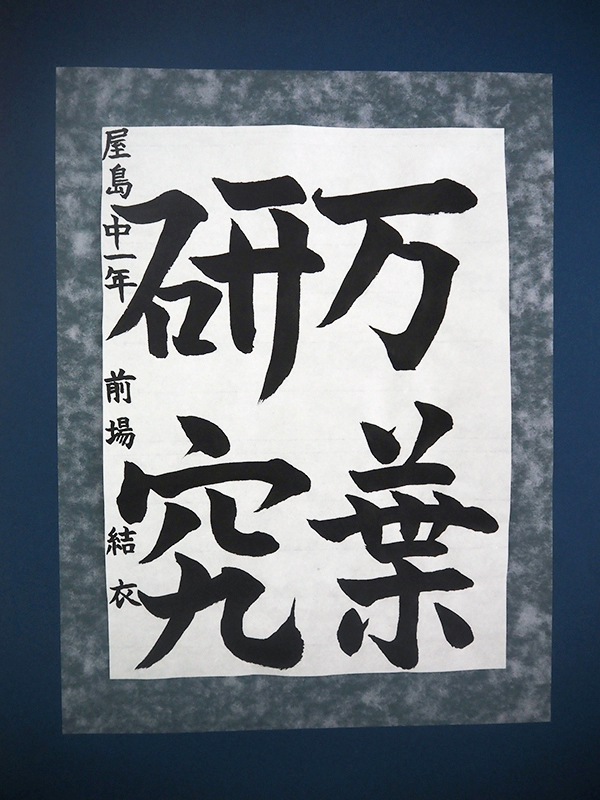 万葉
研究
屋島中一年 前場 結衣